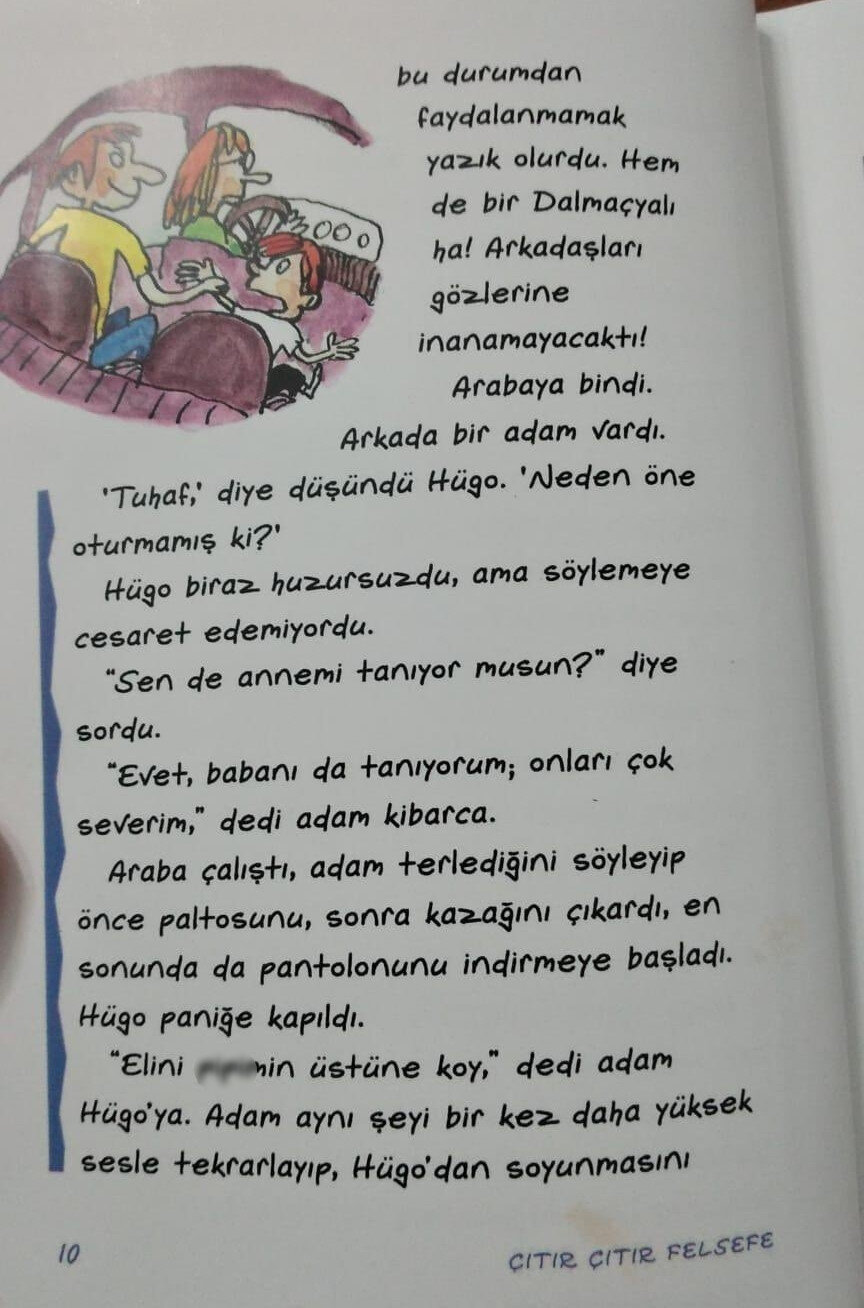 bu durumdan
faydalanmamak
yazık olurdu. Hem
de bir Dalmaçyalı
ha! Arkadaşları
gözlerine
inanamayacaktı!
Arabaya bindi.
Arkada bir adam vardı.
'Tuhaf,' diye düşündü Hügo. 'Neden öne
oturmamış ki?'
Hügo biraz huzursuzdu, ama söylemeye
cesaret edemiyordu.
"Sen de annemi tanıyor musun?" diye
sordu.
"Evet, babanı da tanıyorum; onları çok
severim," dedi adam kibarca.
Araba çalıştı, adam terlediğini söyleyip
önce paltosunu, sonra kazağını çıkardı, en
sonunda da pantolonunu indirmeye başladı.
Hügo paniğe kapıldı.
"Elini üstüne koy," dedi adam
Hügo'ya. Adam aynı şeyi bir kez daha yüksek
sesle tekrarlayıp, Hügo'dan soyunmasını
10
ÇITIR ÇITIR FELSEFE